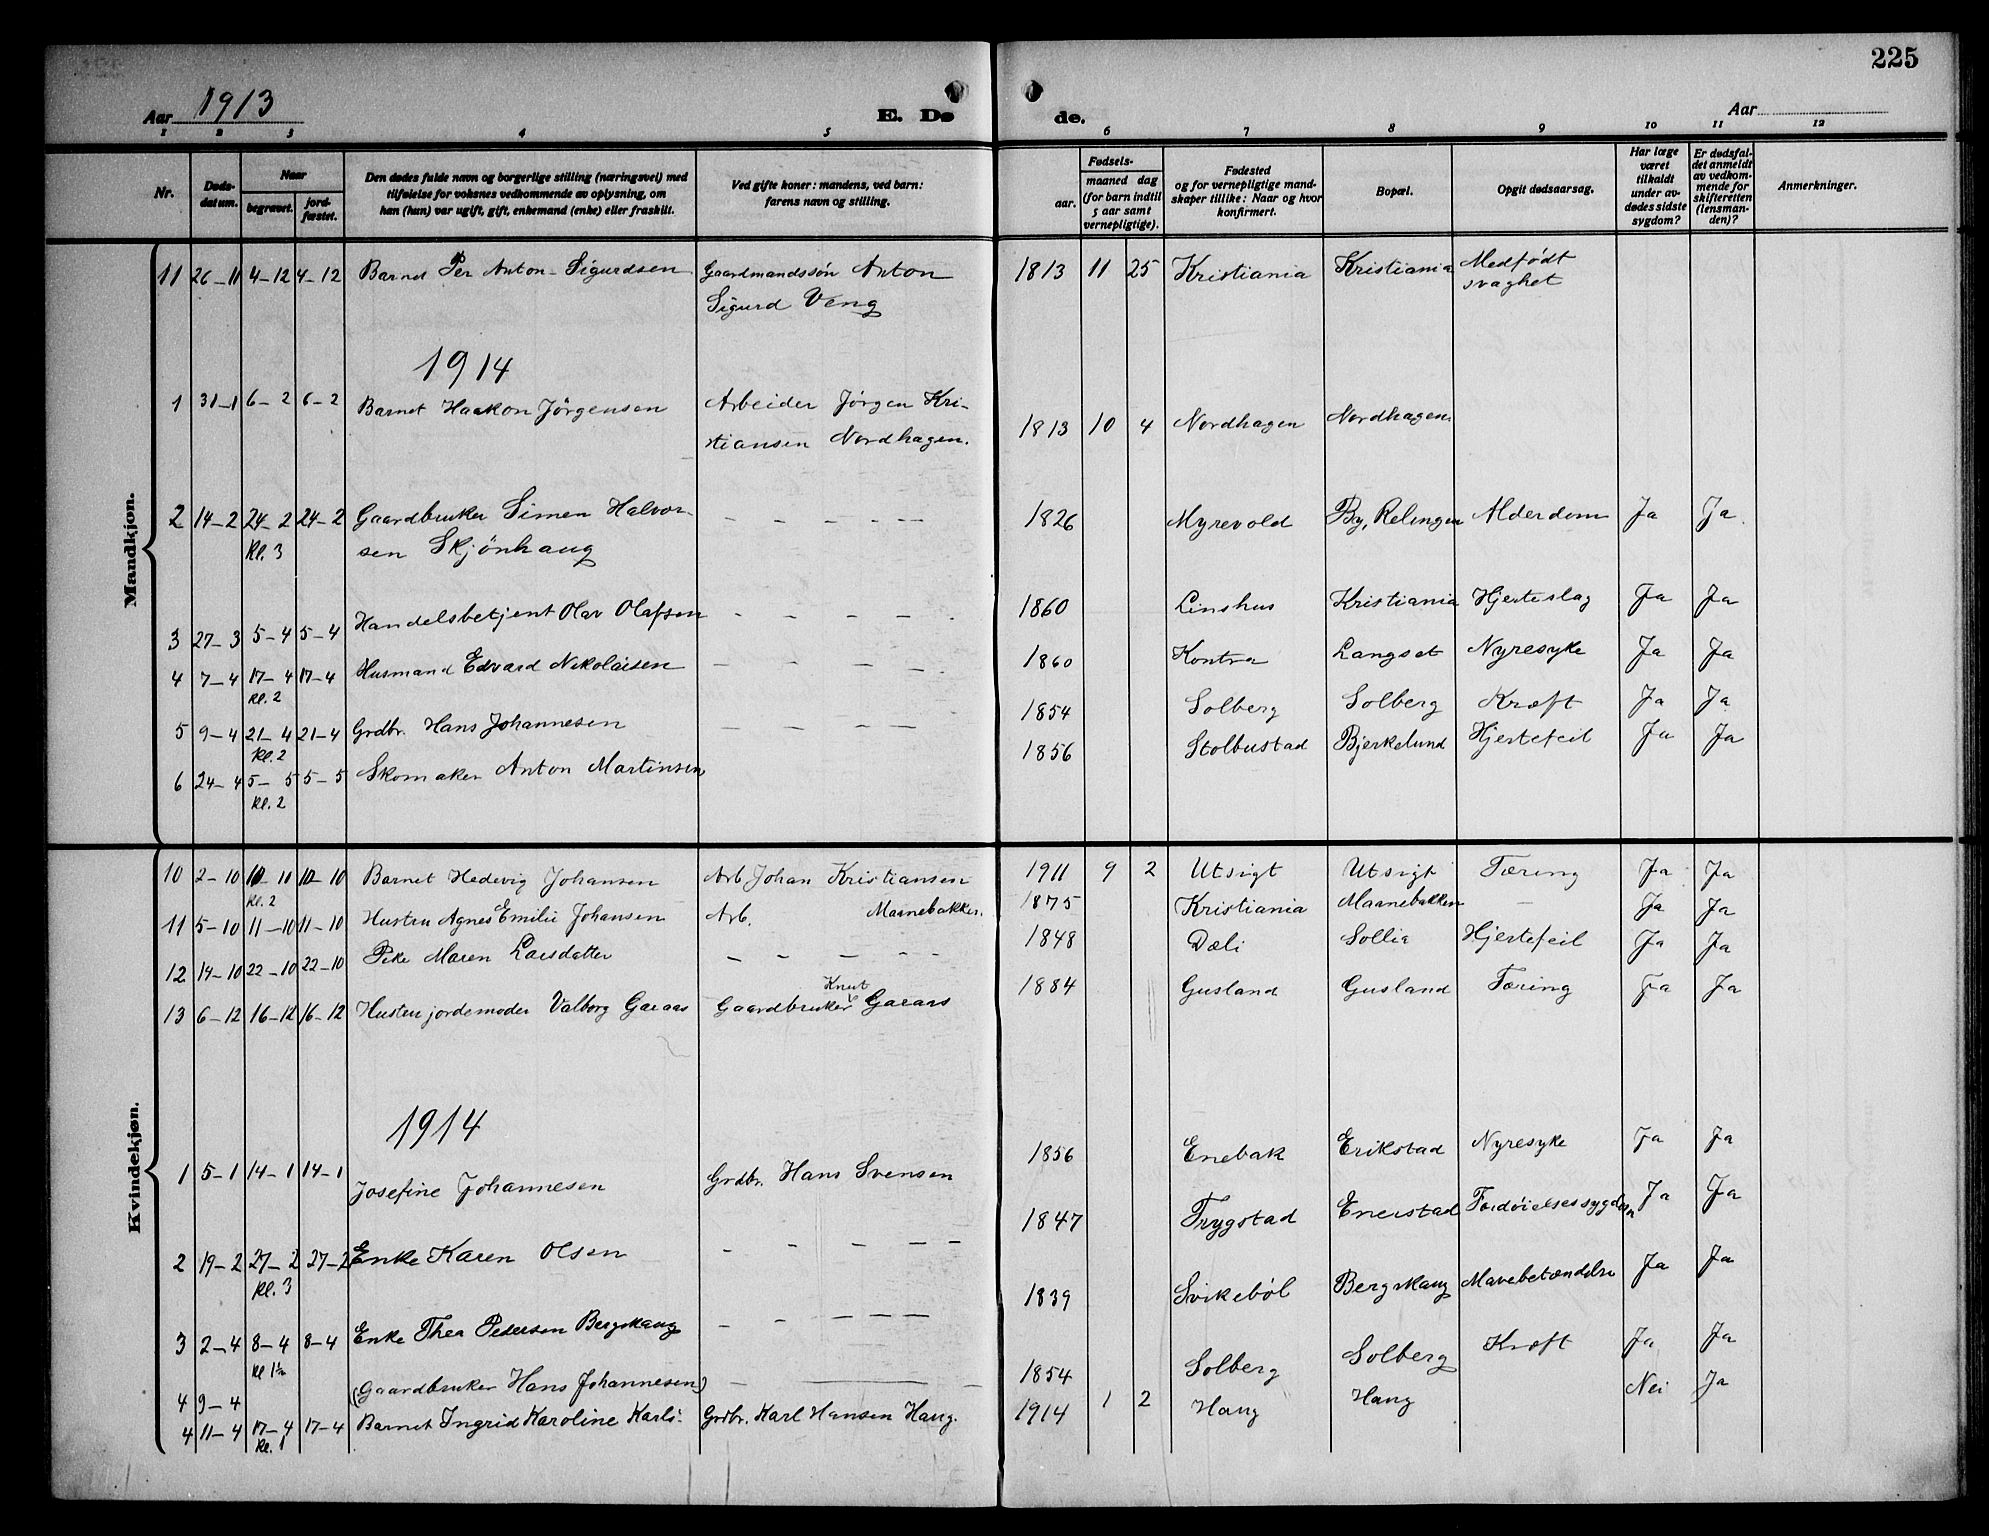 225
Aar 1913
E. Dø
de.
Aar
1 2 3 4 5 6 7 8 9 10 11 12
Nr.
Døds-
datum.
Naar
begravet.
jord-
fæstet.
Den dødes fulde navn og borgerlige stilling (næringsvei) med
tilføielse for voksnes vedkommende av oplysning, om
han (hun) var ugift, gift, enkemand (enke) eller fraskilt.
Ved gifte koner: mandens, ved barn:
farens navn og stilling.
Fødsels-
aar.
maaned dag
(for barn indtil
5 aar samt
vernepligtige).
Fødested
og for vernepligtige mand-
skaper tillike: Naar og hvor
konfirmert.
Bopæl.
Opgit dødsaarsag.
Har læge
været
tilkaldt
under av-
dødes sidste
sygdom?
Er dødsfal-
det anmeldt
av vedkom-
mende for
skifteretten
(lensman-
den)?
Anmerkninger.
Mandkjøn.
11 26-11 4-12 4-12 Barnet Per Anton Sigurdsen Gaardmandssøn Anton 1813 11 25 Kristiania Kristiania Medfødt
Sigurd Veng svaghet
1914
1 31-1 6-2 6-2 Barnet Haakon Jörgensen Arbeider Jørgen Kri- 1813 10 4 Nordhagen Nordhagen
stiansen Nordhagen.
2 14-2 24-2 24-2 Gaardbruker Simen Halvor- - - - - - 1826 Myrevold By, Relingen Alderdom Ja Ja
Kl. 3 sen Skjönhaug
3 27-3 5-4 5-4 Handelsbetjent Olav Olafsen - - - - - 1860 Linshus Kristiania Hjerteslag Ja Ja
4 7-4 17-4 17-4 Husmand Edvard Nikolaisen - - - - - 1860 Kontra Langset Nyresyke Ja Ja
kl. 2
5 9-4 21-4 21-4 Grdbr. Hans Johannesen - - - - - 1854 Solberg Solberg Kræft Ja Ja
kl. 2
6 24-4 5-5 5-5 Skomaker Anton Martinsen 1856 Stolbustad Bjerkelund Hjertefeil Ja Ja
kl. 2
Kvindekjøn.
10 2-10 10-10 Barnet Hedevig Johansen Arb Johan Kristiansen 1911 9 2 Utsigt Utsigt Tæring Ja Ja
kl. 2
11 5-10 11-10 11-10 Hustru Agnes Emilie Johansen Arb. Maanebakken. 1875 Kristiania Maanebakken - Ja Ja
12 14-10 22-10 22-10 Pike Maren Larsdatter - - - - - 1848 Dæli Sollia Hjertefeil Ja Ja
13 6-12 16-12 16-12 Hustru jordemoder Valborg Garaas Gaardbruker Knut Garaas 1884 Gusland Gusland Tæring Ja Ja
1914
1 5-1 14-1 14-1 Josefine Johannesen Grdbr. Hans Svensen 1856 Enebak Erikstad Nyresyke Ja Ja
2 19-2 27-2 27-2 Enke Karen Olsen - - - - - 1847 Trygstad Enerstad Fordøielsessygdom Ja Ja
kl. 3
3 2-4 8-4 8-4 Enke Thea Pedersen Bergskaug - - - - - 1839 Svikebøl Bergskaug Mavebetændelse Ja Ja
Kl 1½
4 9-4 (Gaardbruker Hans Johannesen) - 1854 Solberg Solberg Kræft Ja Ja
4 11-4 17-4 17-4 Barnet Ingrid Karoline Karls- Grdbr. Karl Hansen Haug. 1914 1 2 Haug Haug Nei Ja
kl. 1